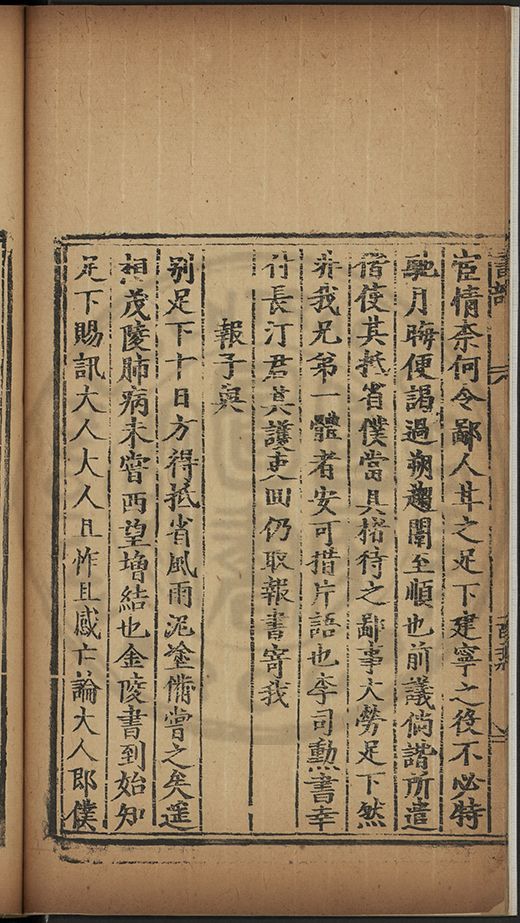 宦情柰何令鄙人耳之足下建寧之役不必特
馳月晦便謁過朔趨闈至順也前議倘諧所遣
偕使其抵省僕當具楮待之鄙事大勞足下然
弟我兄第一體者安可措片語也李司勲書幸
付長汀君其護吏回仍取報書寄我
報子與
别足下十日方得抵省風雨泥塗備嘗之矣遥
想茂陵肺病未嘗西望增結也金陵書到始知
足下賜訊大人大人且怍且感亡論大人即僕